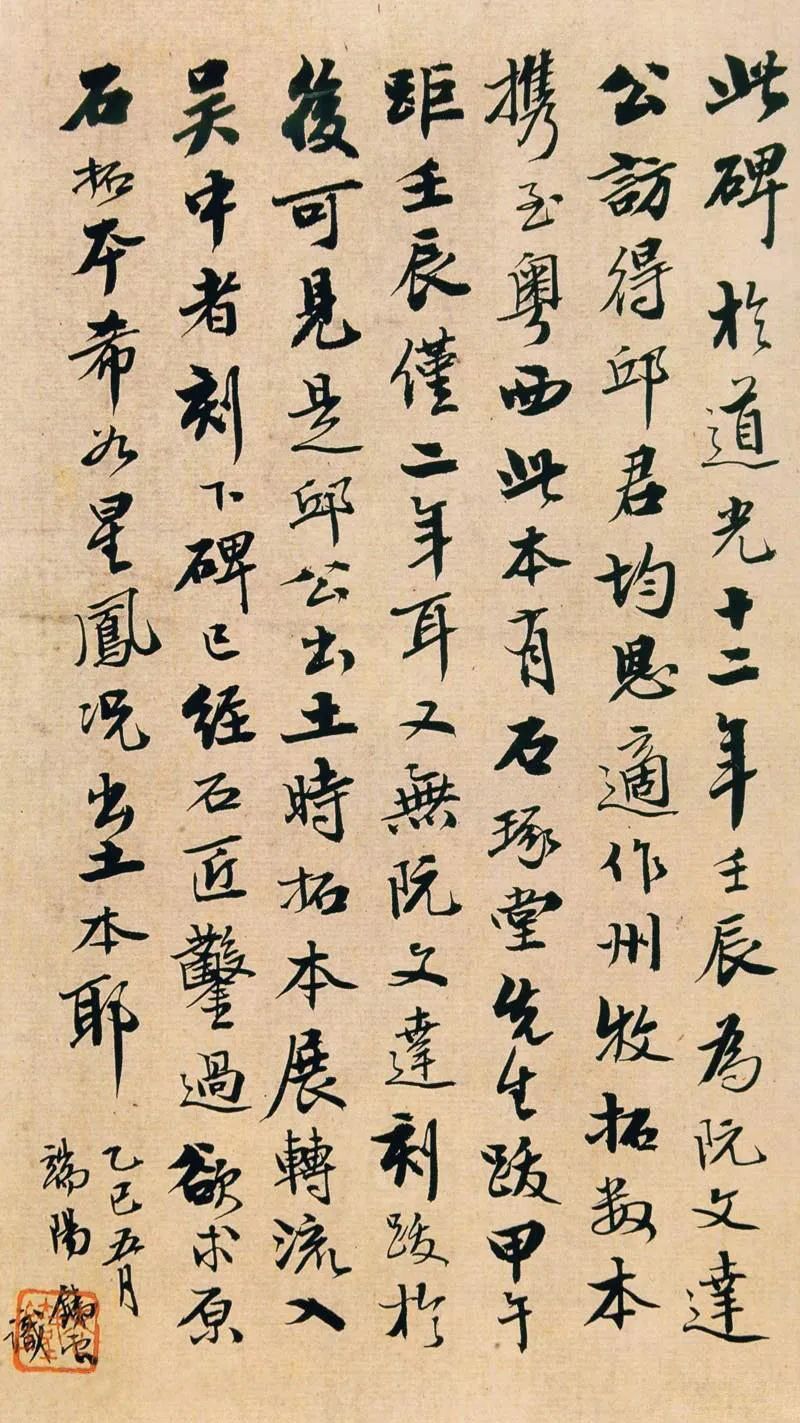 此碑於道光十二年壬辰為阮文達
公訪得邱君均恩適作州牧拓數本
携至粵西此本有石琢堂先生跋甲午
距壬辰僅二年耳又無阮文達刻跋於
後可見是邱公出土時拓本展轉流入
吳中者刻下碑已經石匠鑿過欲求原
石拓本希如星鳳況出土本耶
乙巳五月
端陽
識